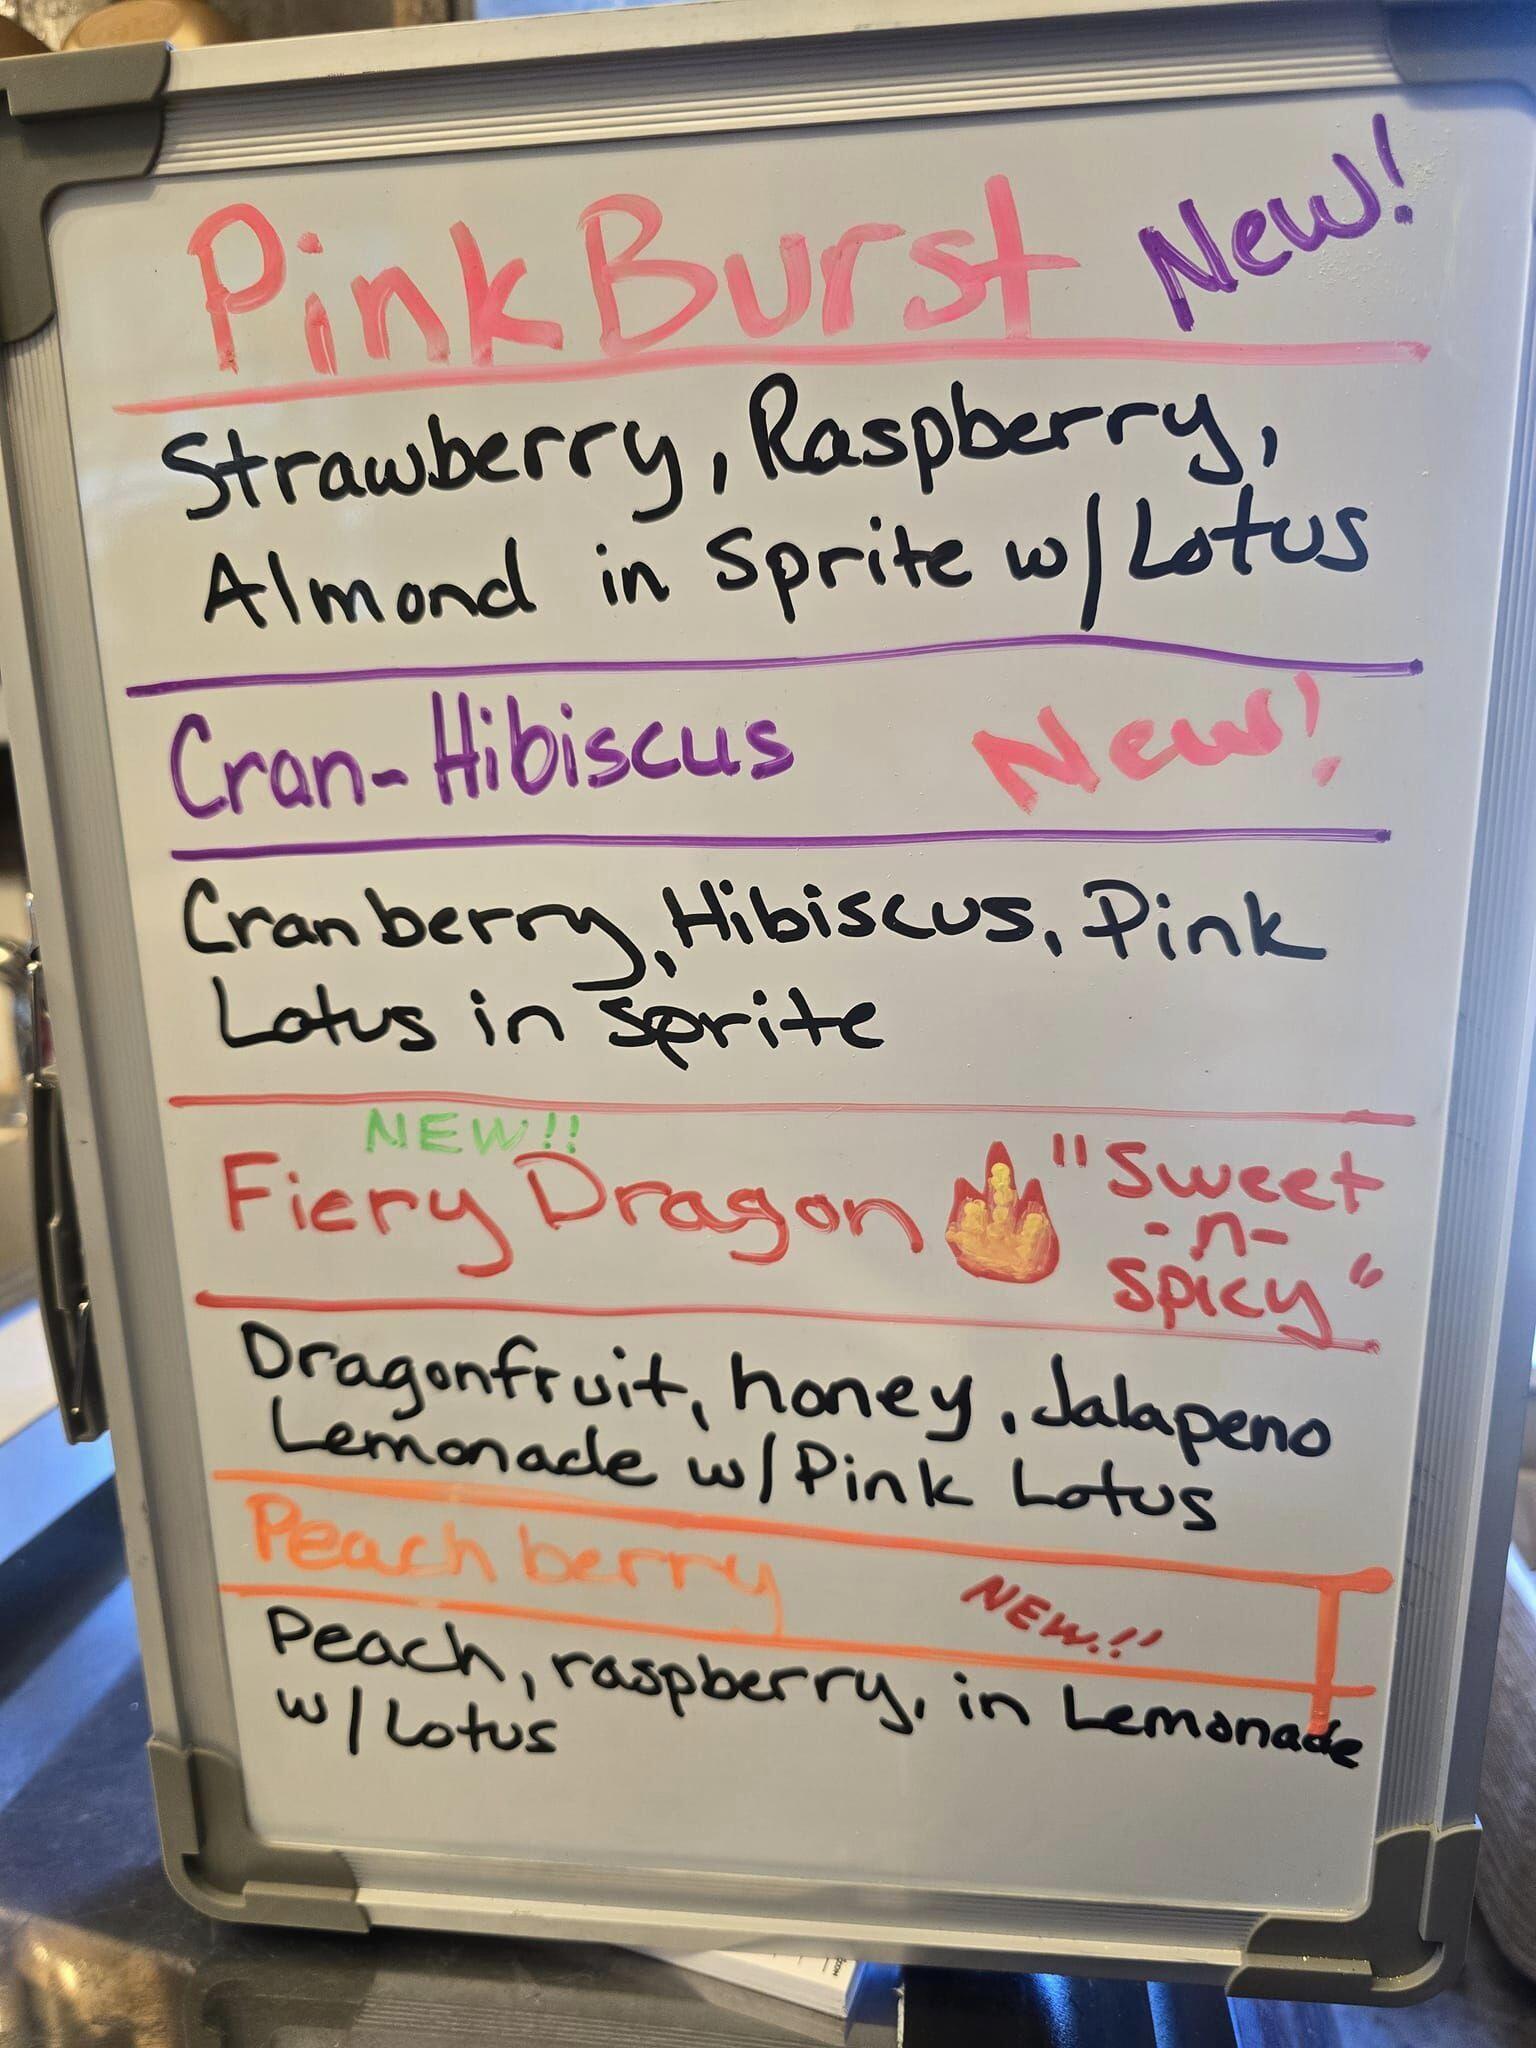 PinkBurst New!
Strawberry, Raspberry,
Almond in Sprite w/Lotus
Cran-Hibiscus New!
Cranberry, Hibiscus, Pink
Lotus in Sprite
NEW!!
Fiery Dragon "Sweet
-n-
Spicy"
Dragonfruit, honey, Jalapeno
Lemonade w/Pink Lotus
Peachberry NEW!!
Peach, raspberry, in Lemonade
w/Lotus